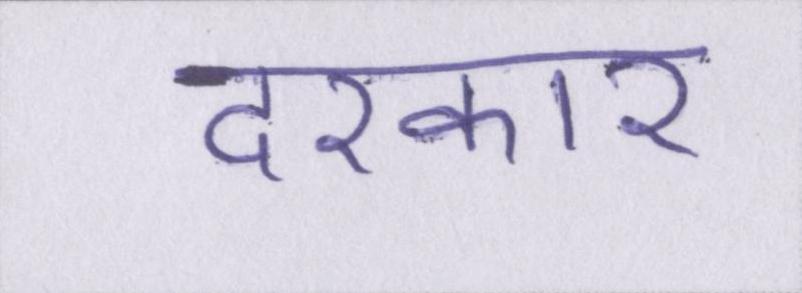 दरकार